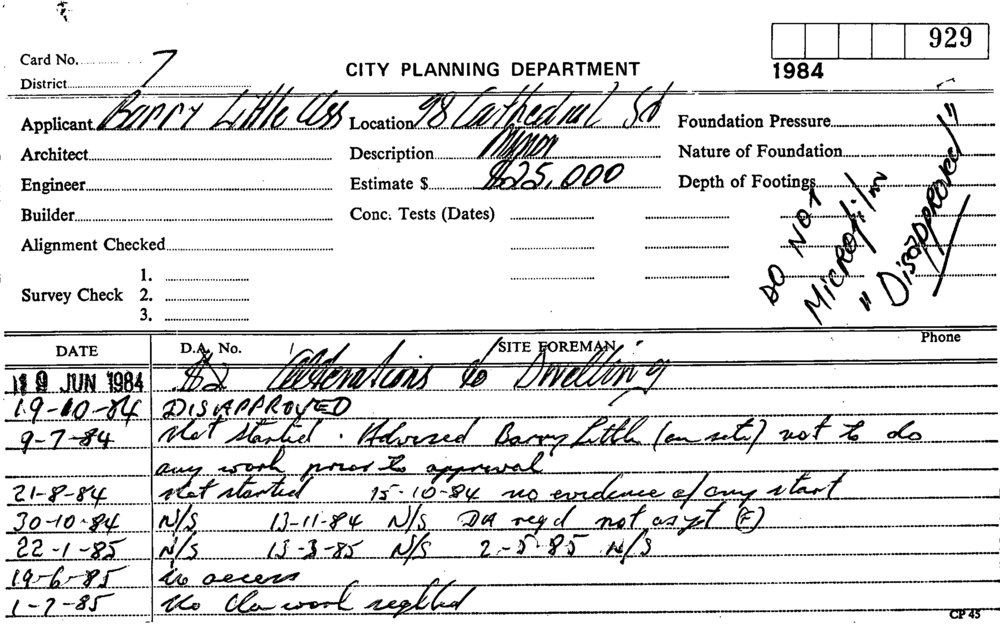 929
Card No. 7
CITY PLANNING DEPARTMENT
1984
District
Applicant Barry Little Ass Location 98 Cathedral St Foundation Pressure
Architect Description Minor Nature of Foundation
Engineer Estimate $ $25,000 Depth of Footings
Builder Conc. Tests (Dates)
Alignment Checked
DO NOT
MICROfilm
"DisAPPROVED"
1.
Survey Check 2.
3.
DATE D.A. No. SITE FOREMAN Phone
19 JUN 1984 $2 Alterations to Dwelling
19-10-84 DISAPPROVED
9-7-84 Not started. Advised Barry Little (on site) not to do
any work prior to approval
21-8-84 Not started 15-10-84 no evidence of any start
30-10-84 N/S 13-11-84 N/S DA reqd not as yet (F)
22-1-85 N/S 13-3-85 N/S 2-5-85 N/S
19-6-85 No access
1-7-85 No work
CP 45